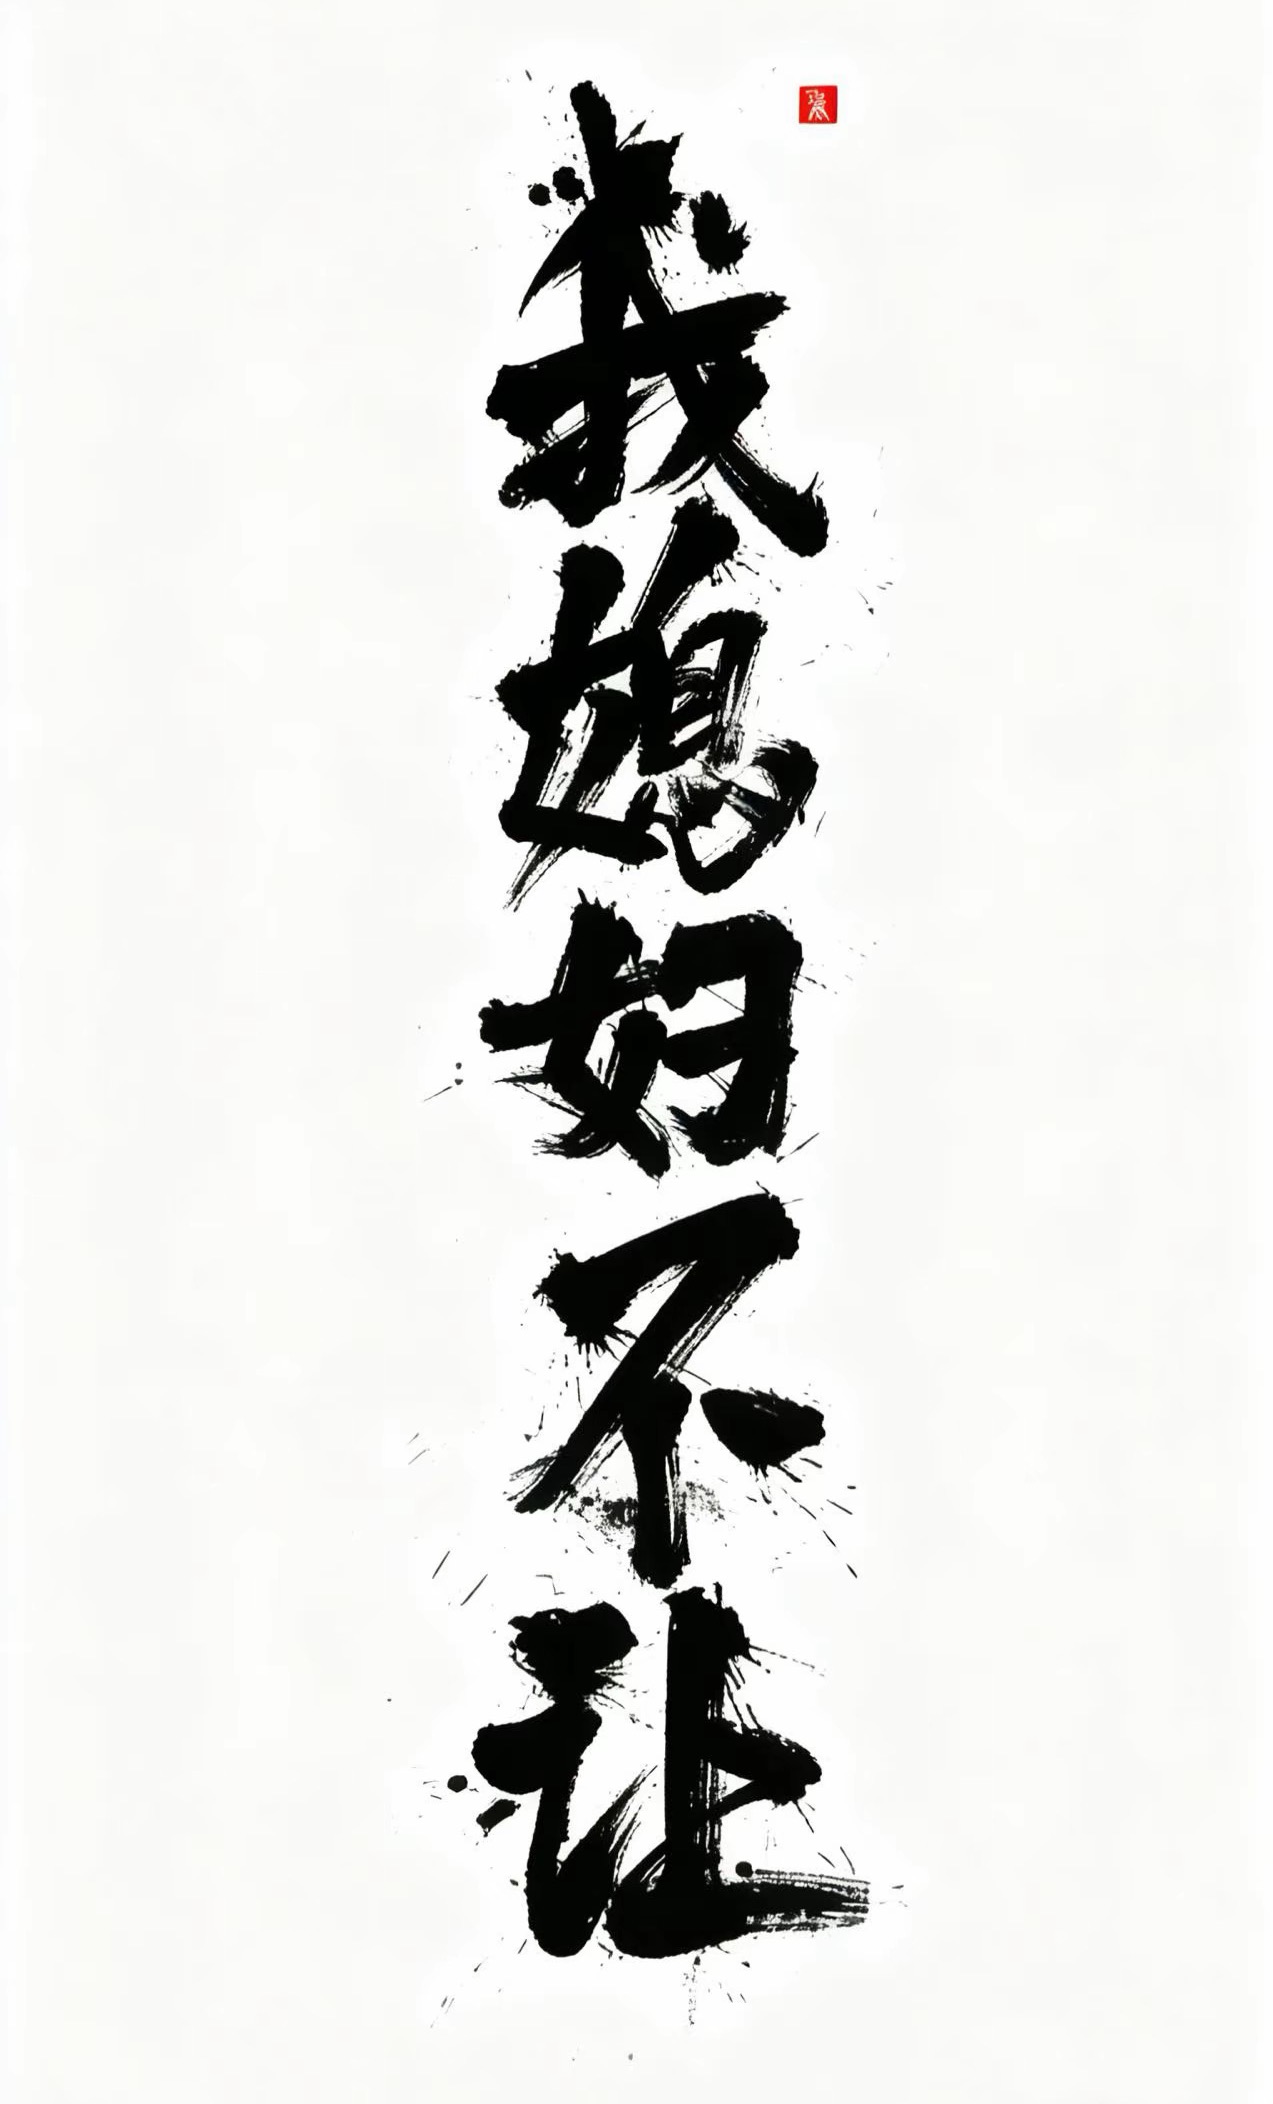 我媳妇不让